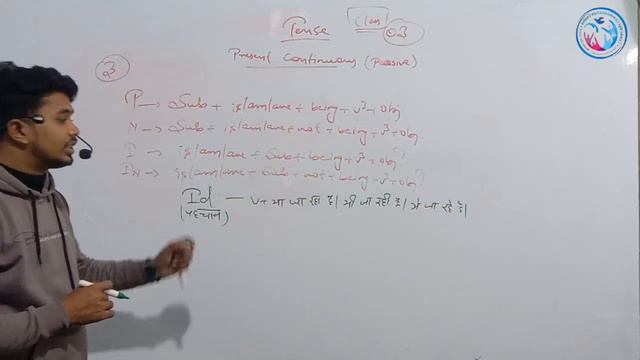 Tense Class 03
Present Continuous (Passive)
3
P → Sub + is/am/are + being + v³ + obj
N → Sub + is/am/are + not + being + v³ + obj.
I → is/am/are + Sub + being + v³ + obj?
IN → is/am/are + Sub + not + being + v³ + obj?
Id — V+ आ जा रहा है। ई जा रही है। ये जा रहे है।
(पहचान)